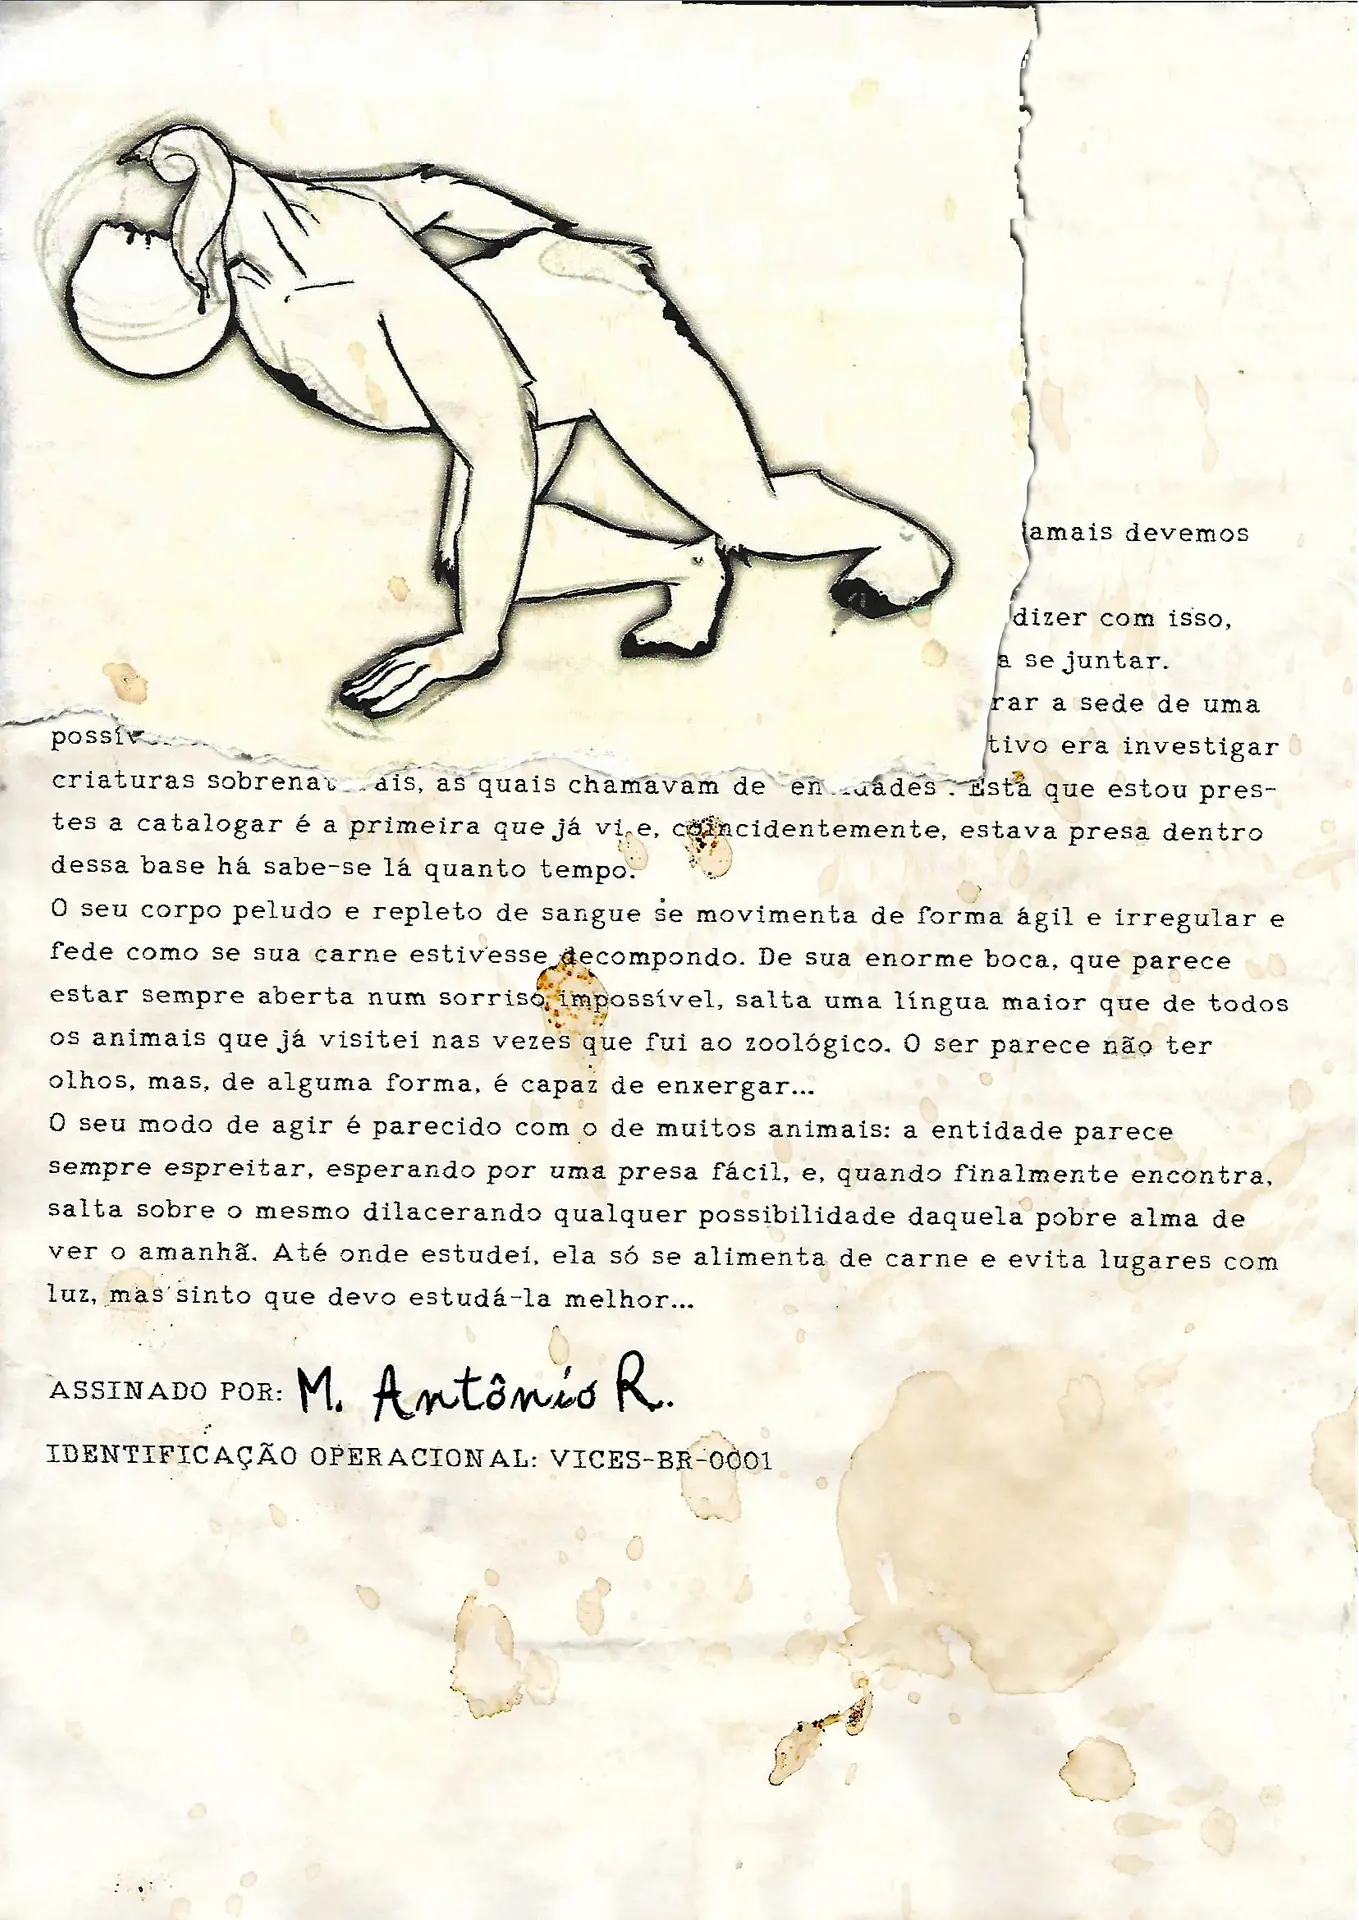 amais devemos
dizer com isso,
a se juntar.
rar a sede de uma
possív
tivo era investigar
criaturas sobrena ais, as quais chamavam de en ades . Esta que estou pres-
tes a catalogar é a primeira que já vi e, coincidentemente, estava presa dentro
dessa base há sabe-se lá quanto tempo.
O seu corpo peludo e repleto de sangue se movimenta de forma ágil e irregular e
fede como se sua carne estivesse decompondo. De sua enorme boca, que parece
estar sempre aberta num sorriso impossível, salta uma língua maior que de todos
os animais que já visitei nas vezes que fui ao zoológico. O ser parece não ter
olhos, mas, de alguma forma, é capaz de enxergar...
O seu modo de agir é parecido com o de muitos animais: a entidade parece
sempre espreitar, esperando por uma presa fácil, e, quando finalmente encontra,
salta sobre o mesmo dilacerando qualquer possibilidade daquela pobre alma de
ver o amanhã. Até onde estudei, ela só se alimenta de carne e evita lugares com
luz, mas sinto que devo estudá-la melhor...
ASSINADO POR: M. Antônio R.
IDENTIFICAÇÃO OPERACIONAL: VICES-BR-0001